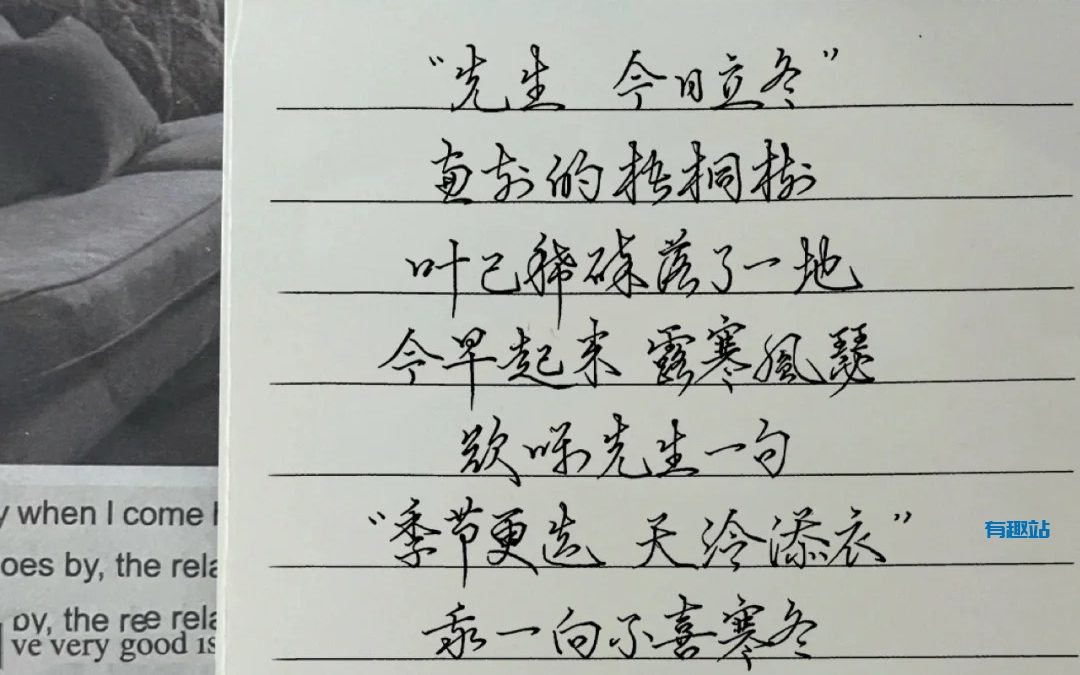 “先生 今日立冬”
窗前的梧桐树
叶已稀疎落了一地
今早起来 露寒風瑟
欲咛先生一句
“季节更迭 天冷添衣”
我一向不喜寒冬
有趣站
y when I come
oes by, the rela
by, the ree rela
ve very good is